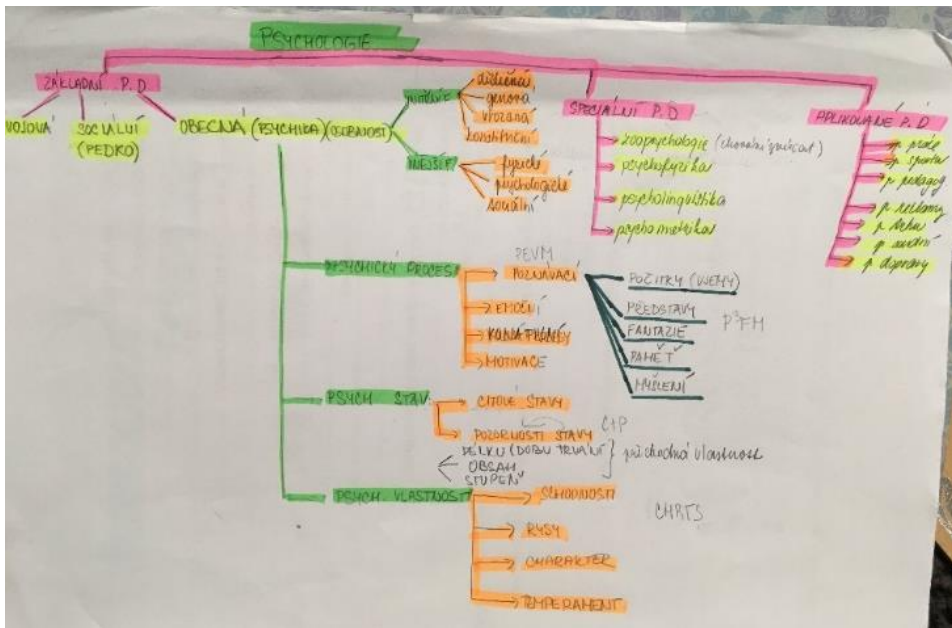 PSYCHOLOGIE
ZÁKLADNÍ P.D
VOJOVÁ
SOCIÁLNÍ
(PEDKO)
OBECNÁ (PSYCHIKA) (OSOBNOST)
VNITŘNÍ
dědičná
genová
vrozená
konstituční
VNĚJŠÍ
fyzické
psychologické
sociální
SPECIÁLNÍ P.D
zoopsychologie
psychofyzika
psycholingvistika
psychometrika
APLIKOVANÉ P.D
p. práce
p. sportu
p. pedagog
p. reklamy
p. soudní
p. dopravy
PSYCHICKÝ PROCES
PEVM
POZNÁVACÍ
EMOČNÍ
MOTIVACE
POČITKY (VJEMY)
PŘEDSTAVY
FANTAZIE
PAMĚŤ
MYŠLENÍ
P³FM
PSYCH STAV
CITOVÉ STAVY
POZORNOSTI STAVY
CIP
DÉLKU (DOBU TRVÁNÍ
OBSAH
STUPEŇ
přechodná vlastnost
PSYCH VLASTNOSTI
SCHOPNOSTI
RYSY
CHARAKTER
TEMPERAMENT
CHRTS